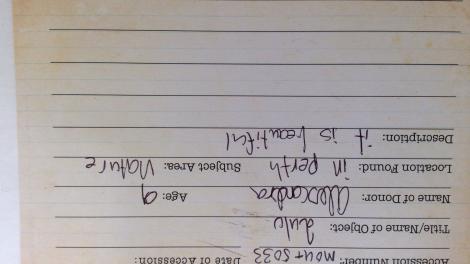 Accession Number: Date of Accession:
Title/Name of Object:
Name of Donor: alexandra Age: 9
Location Found: in perth Subject Area: Nature
Description: it is beautiful